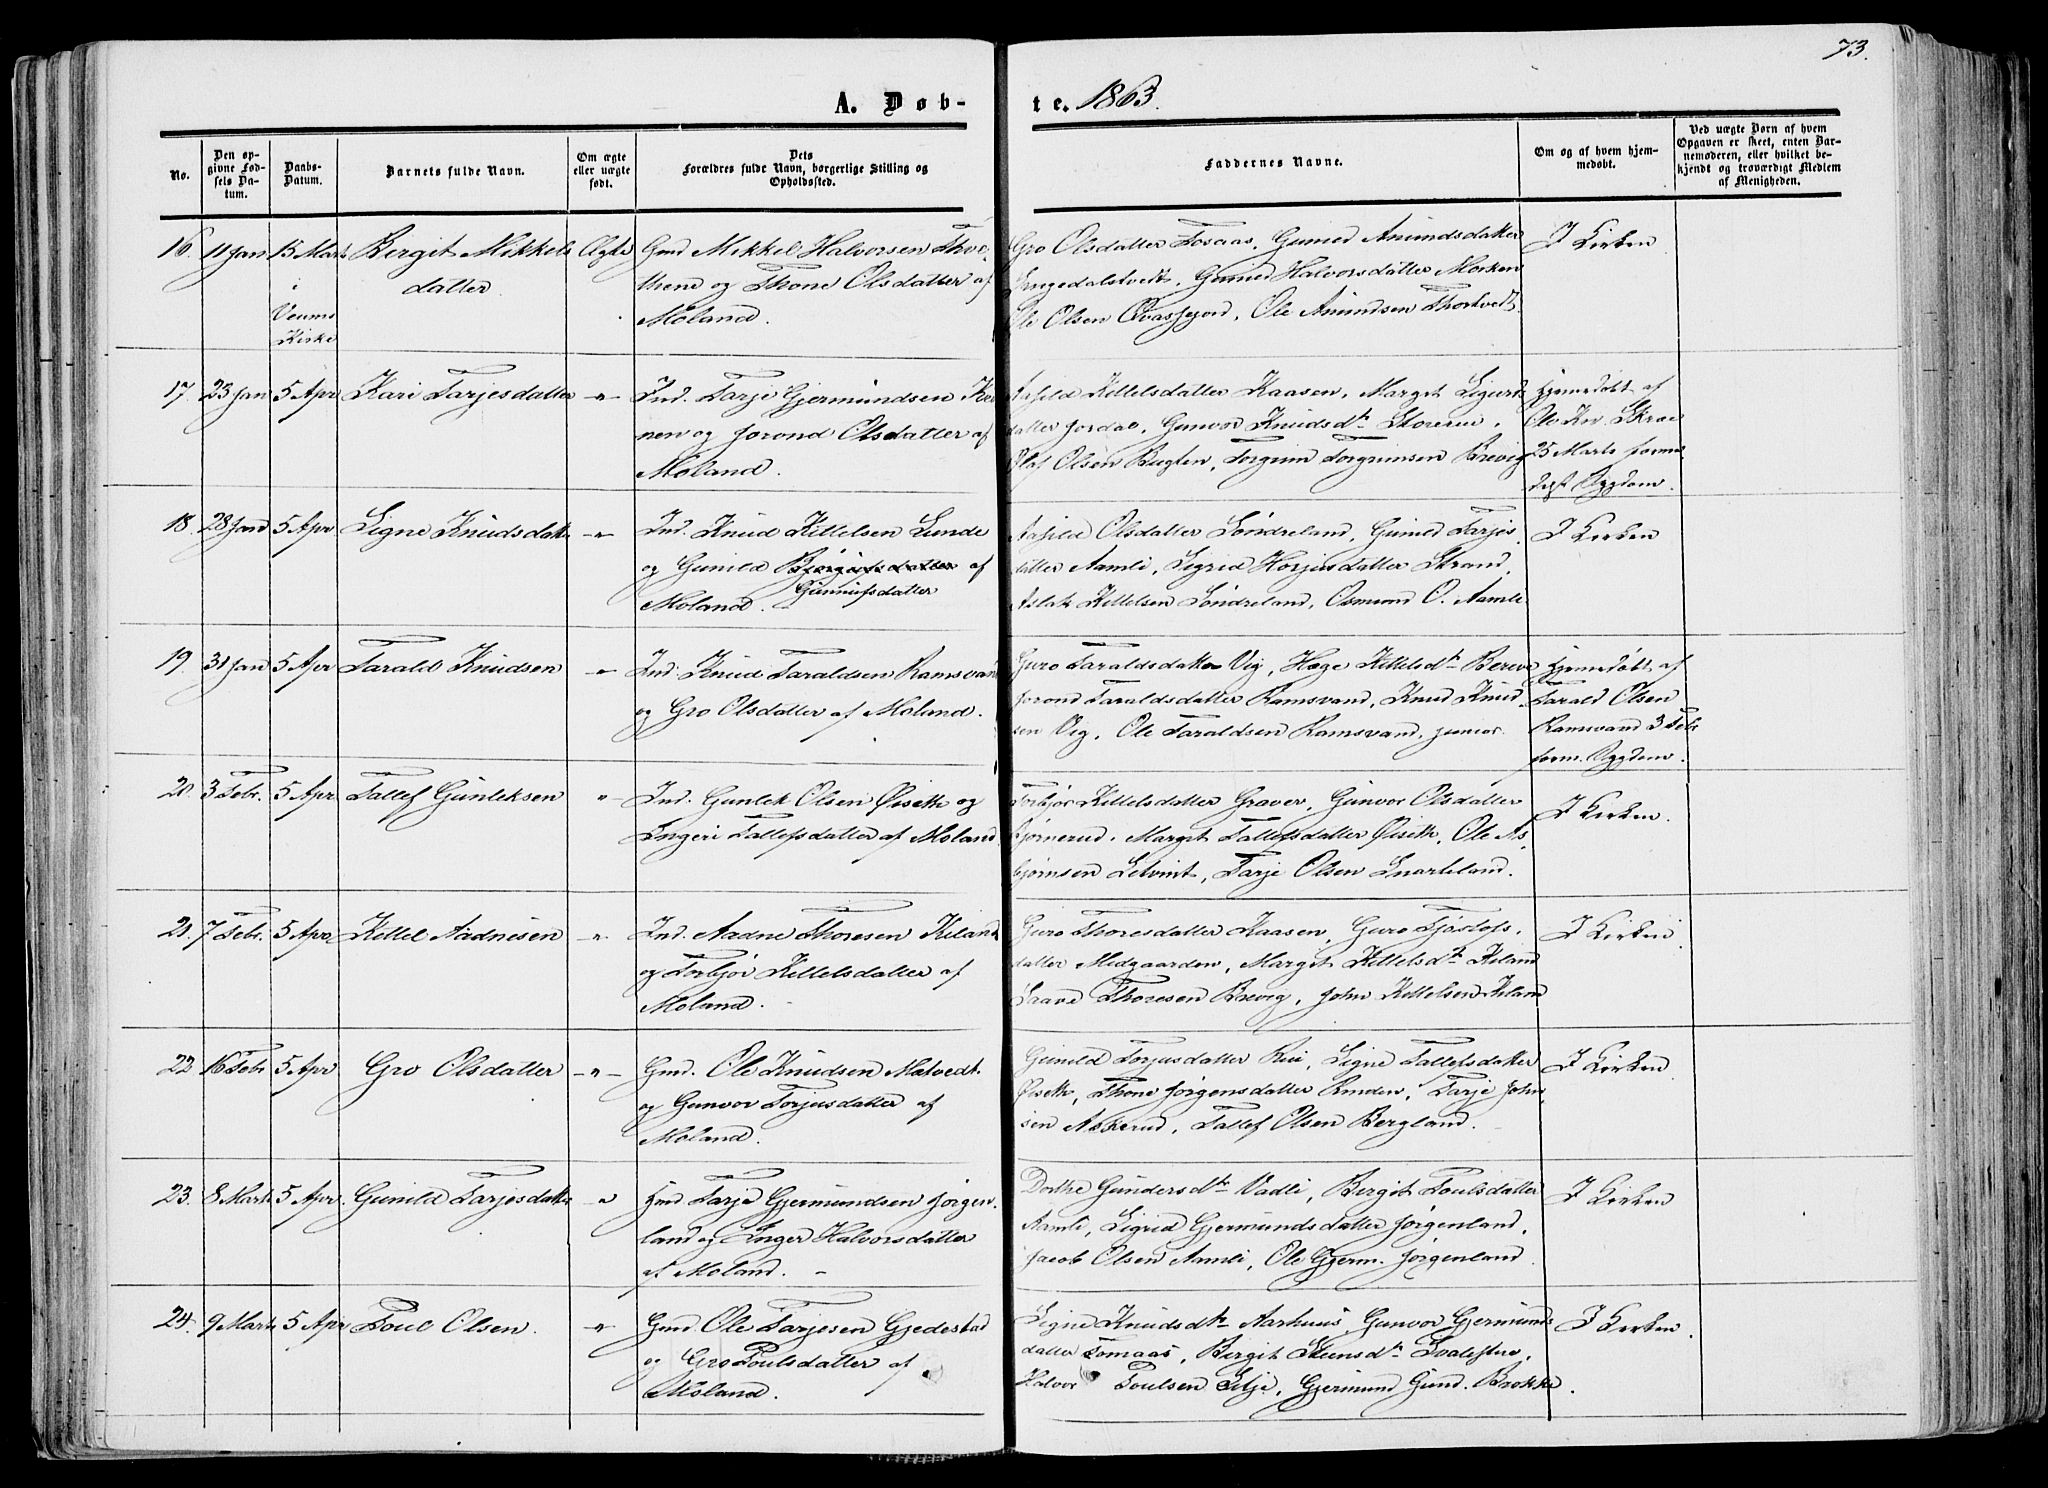 73.
A. Døb-
te. 1863.
No.
Den op-
givne Fød-
sels Da-
tum.
Daabs-
Datum.
Barnets fulde Navn.
Om ægte
eller uægte
født.
Dets
Forældres fulde Navn, borgerlige Stilling og
Opholdssted.
Faddernes Navne.
Om og af hvem hjem-
medøbt.
Ved uægte Børn af hvem
Opgaven er skeet, enten Bar-
nemoderen, eller hvilket be-
kjendt og troværdigt Medlem
af Menigheden.
16. 11 Jan 15 Mart Bergit Mikkels Ægte Gmd Mikkel Halvorsen
i datter og Thone Olsdatter af
Veums Moland.
Kirke
Gro Olsdatter Fosaas, Guned Amundsdatter I Kirken
Halvorsdatter Morken
Ole Olsen Qvasfjord, Ole Amundsen Thortvedt
17 23 Jan 5 Apr Kari Tarjesdatter -"- Ind. Tarje Gjermundsen
nen og Jorond Olsdatter af
Moland.
Aasild Kittelsdatter Kaasen, Margit Sigurds Hjemmedøbt af
datter Jordal, Gunvor Knudsdtr Storerui, Ole Kn. Skree
Olaf Olsen Bugten, Torgrim Torgrimsen Brevig 25 Marts forme-
delst Sygdom.
18. 28 Jan 5 Apr Signe Knudsdatter -"- Ind. Knud Kittelsen Lunde
og Gunild Bjørgufsdatter af
Gunnufsdatter
Moland.
Aasild Olsdatter Søndreland, Guned Tarjes I Kirken
datter Aamli, Sigrid Horjusdatter Strand,
Aslak Kittelsen Søndreland, Osmund O. Aamli
19. 31 Jan 5 Apr Tarald Knudsen -"- Ind. Knud Taraldsen Ramsvand
og Gro Olsdatter af Moland.
Guro Taraldsdatter Vig, Hæge Kittelsdtr Hjemmedøbt af
Jorond Taraldsdatter Ramsvand, Knud Knud Tarald Olsen
sen Vig, Ole Taraldsen Ramsvand, junior. Ramsvand 3 Febr
form. Sygdom.
20. 3 Febr. 5 Apr Tallef Gunleksen " Ind. Gunlek Olsen Øiseth og
Ingeri Tallefsdatter af Moland
Torbjør Kittelsdatter Graver, Gunvor Olsdatter I Kirken.
Bjørnerud, Margit Tallefsdatter Øiseth, Ole As
bjørnsen, Tarje Olsen Snarteland.
21. 7 Febr. 5 Apr Kittel Aadnesen -"- Ind. Aadne Thoresen Kiland
og Torbjør Kittelsdatter af
Moland.
Guro Thoresdatter Kaasen, Guro Tjøstofs I Kirken
datter Midgaarden, Margit Kittelsdtr Kiland
Saave Thoresen Brevig, John Kittelsen Kiland
22 16 Febr 5 Apr Gro Olsdatter -"- Gmd. Ole Knudsen Mætvedt
og Gunvor Torjusdatter af
Moland.
Gunild Torjusdatter Rui, Signe Tallefsdatter I Kirken
Øiseth, Thone Jørgensdatter Ruden, Tarje John
sen Askerud, Tallef Olsen Bergland.
23. 8 Marts 5 Apr. Gunild Tarjesdatter " Gmd Tarje Gjermundsen Jørgen
land og Inger Halvorsdatter
af Moland.
Dorthe Gundersdtr Vadli, Bergit Poulsdatter I Kirken
Aamli, Sigrid Gjermundsdatter Jørgenland,
Jacob Olsen Aamli, Ole Gjerm. Jørgenland.
24. 9 Marts 5 Apr Poul Olsen. " Gmd. Ole Tarjesen Gjedestad
og Gro Poulsdatter af
Moland.
Signe Knudsdtr Aarhuus, Gunvor Gjermunds I Kirken.
datter Tomaas, Bergit Steensdtr
Halvor Poulsen Lilje, Gjermund Gund. Brokke.